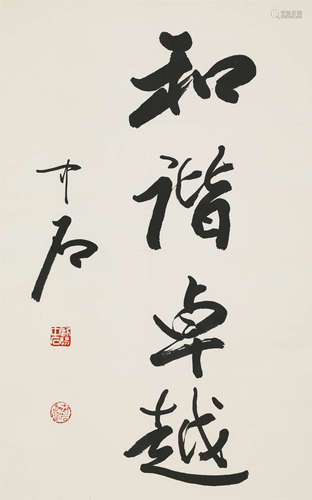 和谐卓越
中石